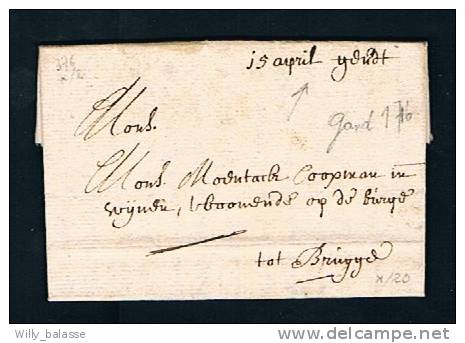 15 april gendt
376
x/20
Gand 1716
Mons.
Mons. Moentack Coopman in
wijnen, woonende op de burge
tot Brugge
x/20
Willy_balasse
www.delcampe.net